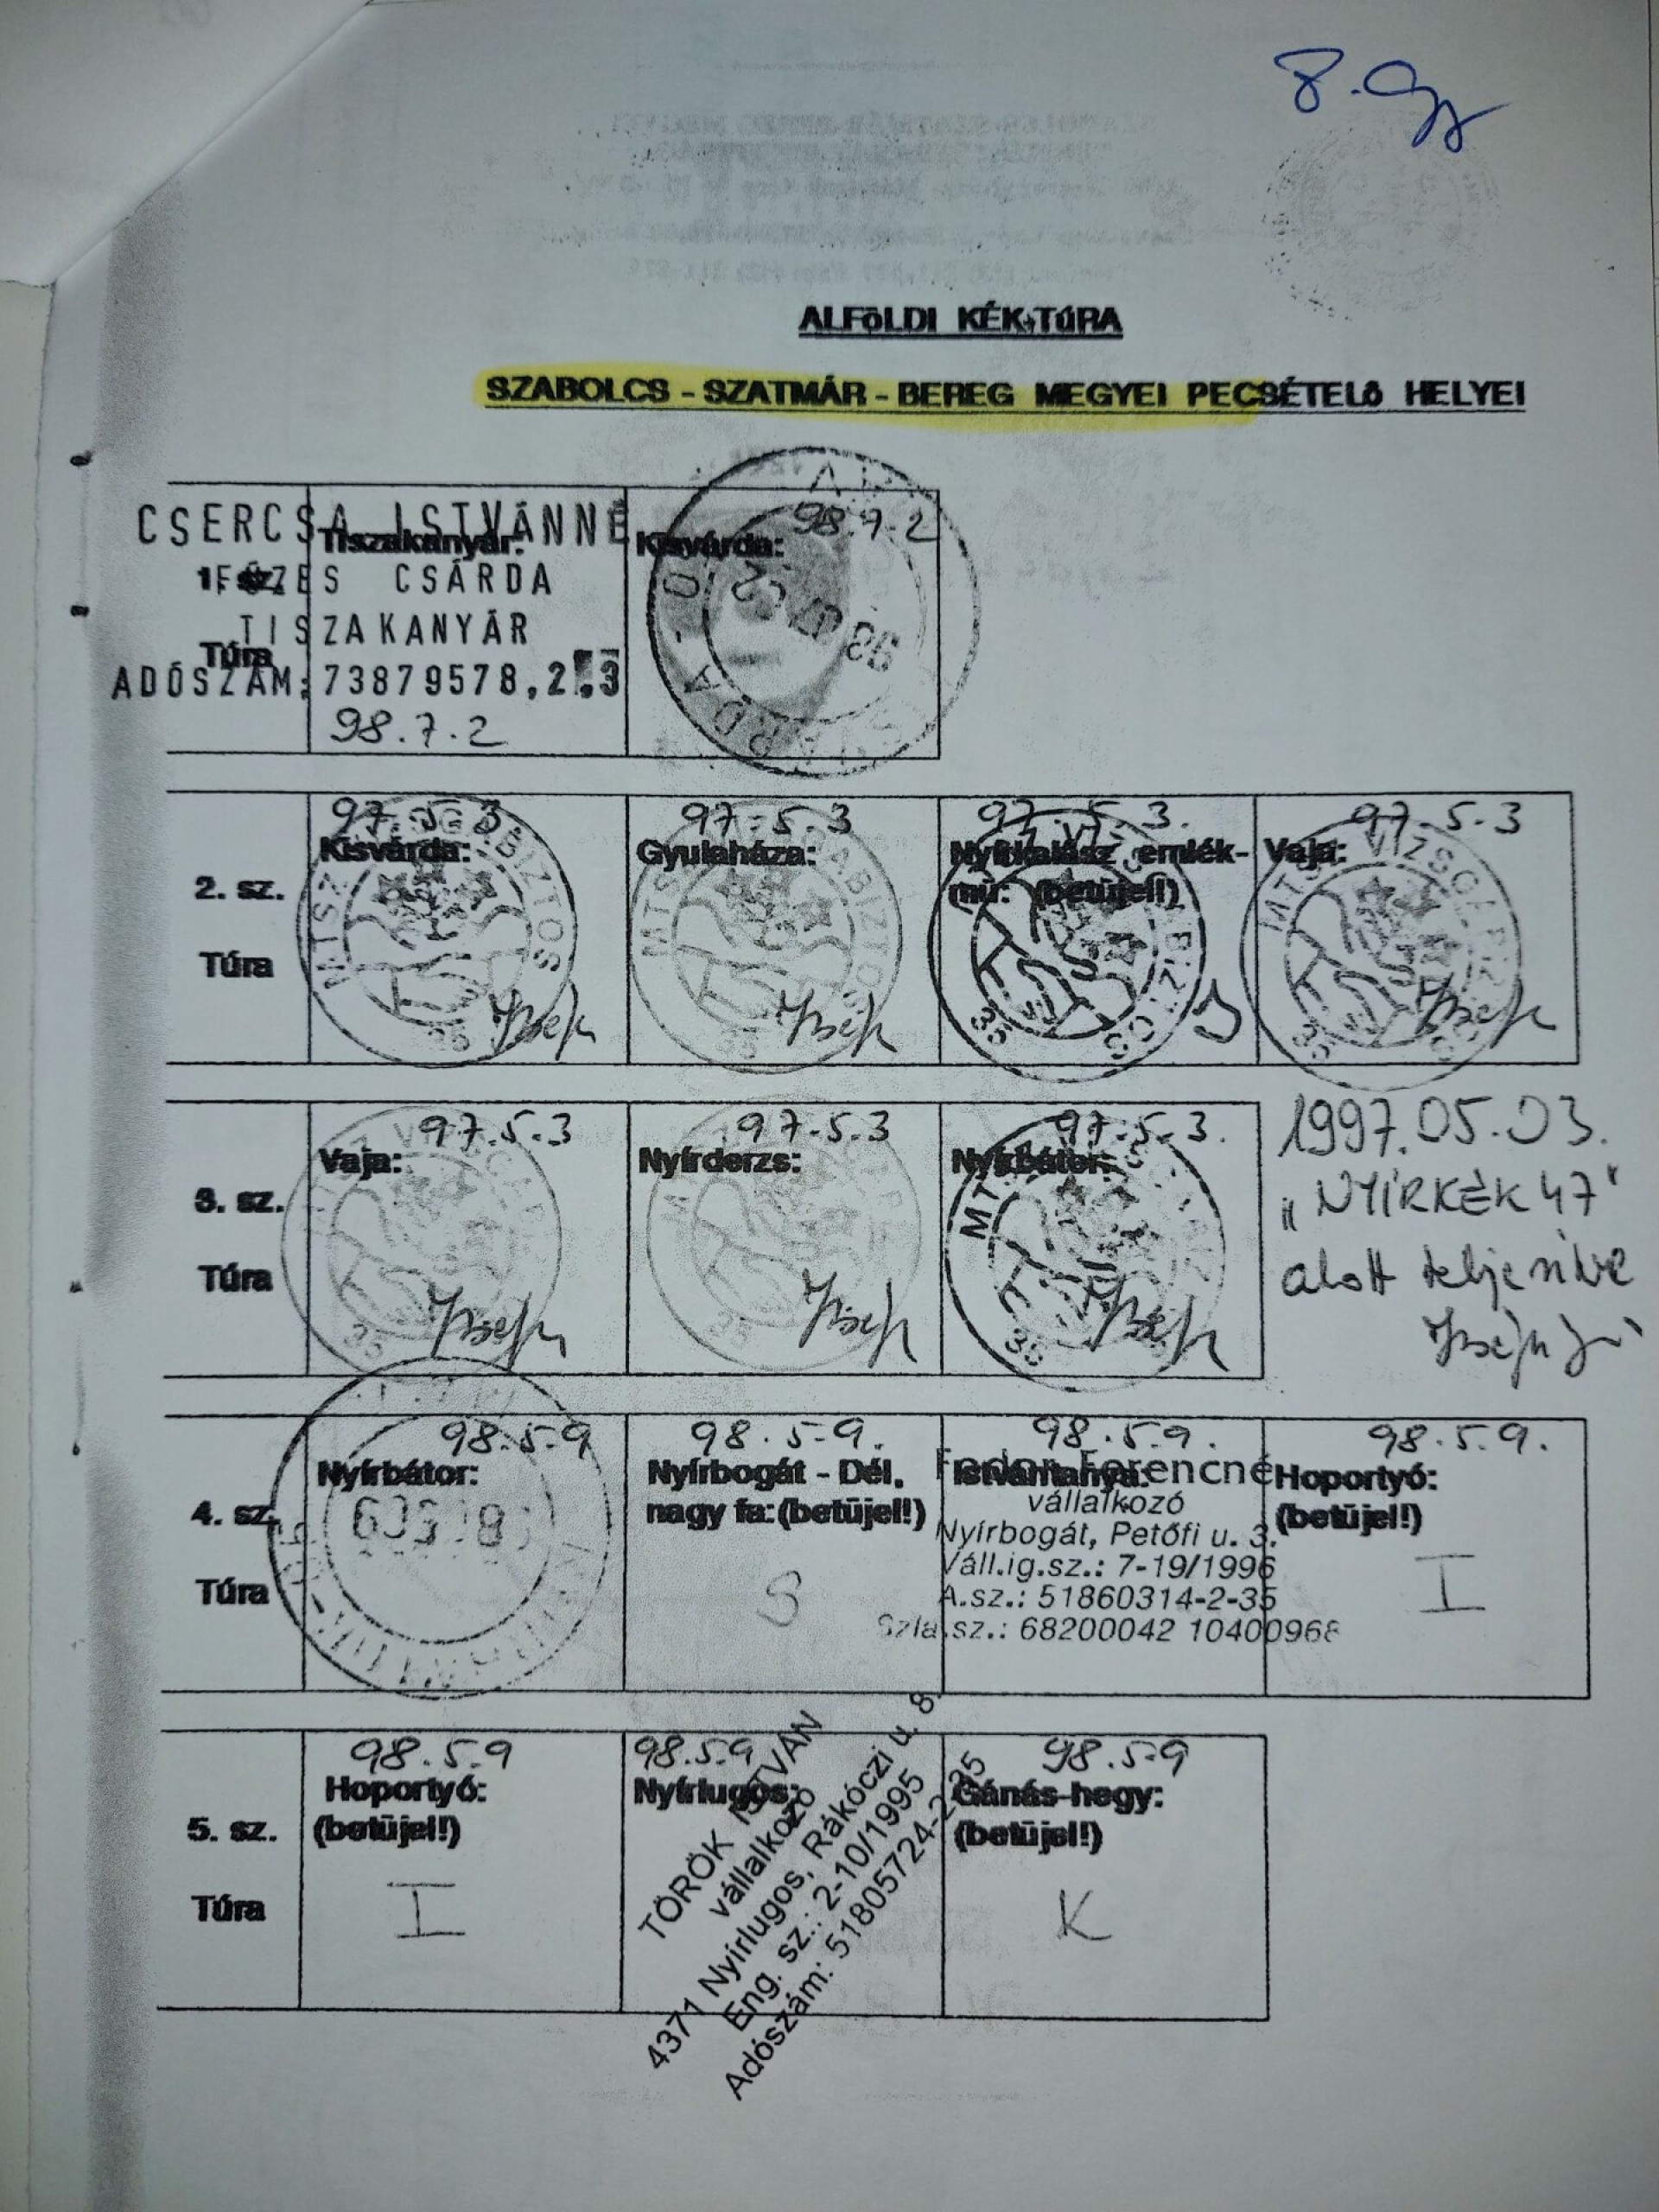 8.
ALFöLDI KÉK-TúRA
SZABOLCS - SZATMÁR - BEREG MEGYEI PECSÉTELő HELYEI
1. sz.
Túra
Tiszakanyár:
CSERCSA ISTVÁNNÉ
FÜZES CSÁRDA
TISZAKANYÁR
ADÓSZÁM: 73879578,2
98.7.2
Kisvárda:
98.7.2
2. sz.
Túra
97.5.3
Kisvárda:
MTSZ BIZTOS
35
97.5.3
Gyulaháza:
MTSZ
35
97.5.3.
Nyírkalász emlék-
mű: (betűjel!)
35
J
97.5.3
Vaja:
MTSZ VIZSG
35
3. sz.
Túra
97.5.3
Vaja:
35
97.5.3
Nyírderzs:
35
97.5.3.
Nyírbátor:
MTSZ
35
1997.05.03.
„NYÍRKÉK 47"
alatt teljesítve
4. sz.
Túra
98.5.9
Nyírbátor:
98.5.9.
Nyírbogát - Dél.
nagy fa: (betűjel!)
S
98.5.9.
Istvántanya:
Fodor Ferencné
vállalkozó
Nyírbogát, Petőfi u. 3.
Váll.ig.sz.: 7-19/1996
A.sz.: 51860314-2-35
Szla.sz.: 68200042 10400968
98.5.9.
Hoportyó:
(betűjel!)
I
5. sz.
Túra
98.5.9
Hoportyó:
(betűjel!)
I
98.5.9
Nyírlugos:
TÖRÖK ISTVÁN
vállalkozó
4371 Nyírlugos, Rákóczi u. 8.
Eng. sz.: 2-10/1995
Adószám: 51805724-2-35
98.5.9
Gánás-hegy:
(betűjel!)
K